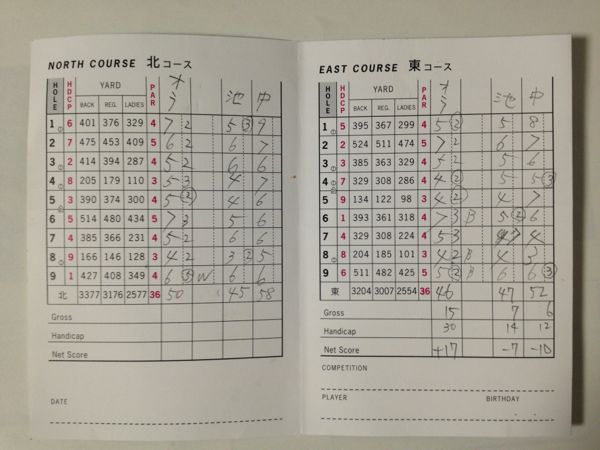 NORTH COURSE 北コース
HOLE HDCP YARD PAR オラ 池 中
BACK REG. LADIES
1 6 401 376 329 4 7 2 5 3 9
2 7 475 453 409 5 6 2 6 7
3 2 414 394 287 4 5 2 6 6
4 8 205 179 110 3 5 3 4 7
5 3 390 374 300 4 5 2 4 6
6 5 514 480 434 5 7 3 5 6
7 4 385 366 231 4 5 2 6 6
8 9 166 146 128 3 4 2 3 2 5
9 1 427 408 349 4 6 W 6 6
北 3377 3176 2577 36 50 45 58
Gross
Handicap
Net Score
DATE
EAST COURSE 東コース
HOLE HDCP YARD PAR オラ 池 中
BACK REG. LADIES
1 5 395 367 299 4 5 2 5 8
2 2 524 511 474 5 7 2 6 7
3 3 385 363 329 4 5 2 5 6
4 7 329 308 286 4 4 2 5 5 3
5 9 134 122 98 3 4 2 4 7
6 1 393 361 318 4 7 3 B 5 2 6
7 4 329 308 224 4 5 3 4
8 8 204 185 101 3 4 2 B 4 3
9 6 511 482 425 5 5 2 B 6 6 3
東 3204 3007 2554 36 46 47 52
Gross 15 7 6
Handicap 30 14 12
Net Score +17 -7 -10
COMPETITION
PLAYER BIRTHDAY